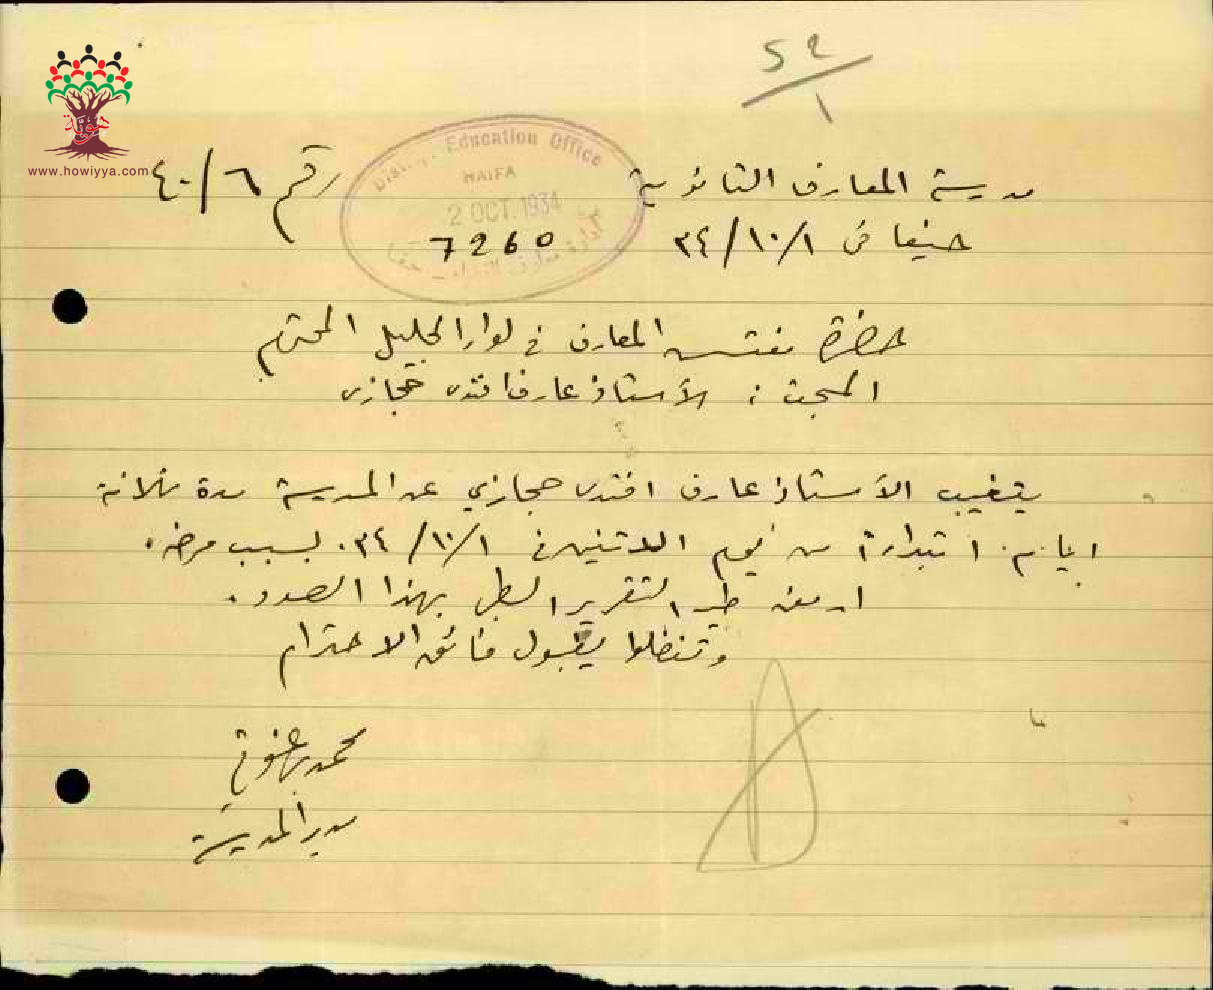 52
١
هوية
www.howiyya.com
District Education Office
HAIFA
2 OCT. 1934
7260
ادارة معارف حيفا
مدرسة المعارف الثانوية
رقم ٤٠/٦
حيفا في ٣٤/١٠/١
حضرة مفتش المعارف في لواء الجليل المحترم
المبحث : الأستاذ عارف افندي حجازي
يتغيب الأستاذ عارف افندي حجازي عن المدرسة مدة ثلاثة
ايام ابتداء من يوم الاثنين في ٣٤/١٠/١ بسبب مرضه.
ارفق طيه التقرير الطبي بهذا الصدد.
وتفضلوا بقبول فائق الاحترام
محمد
مدير المدرسة